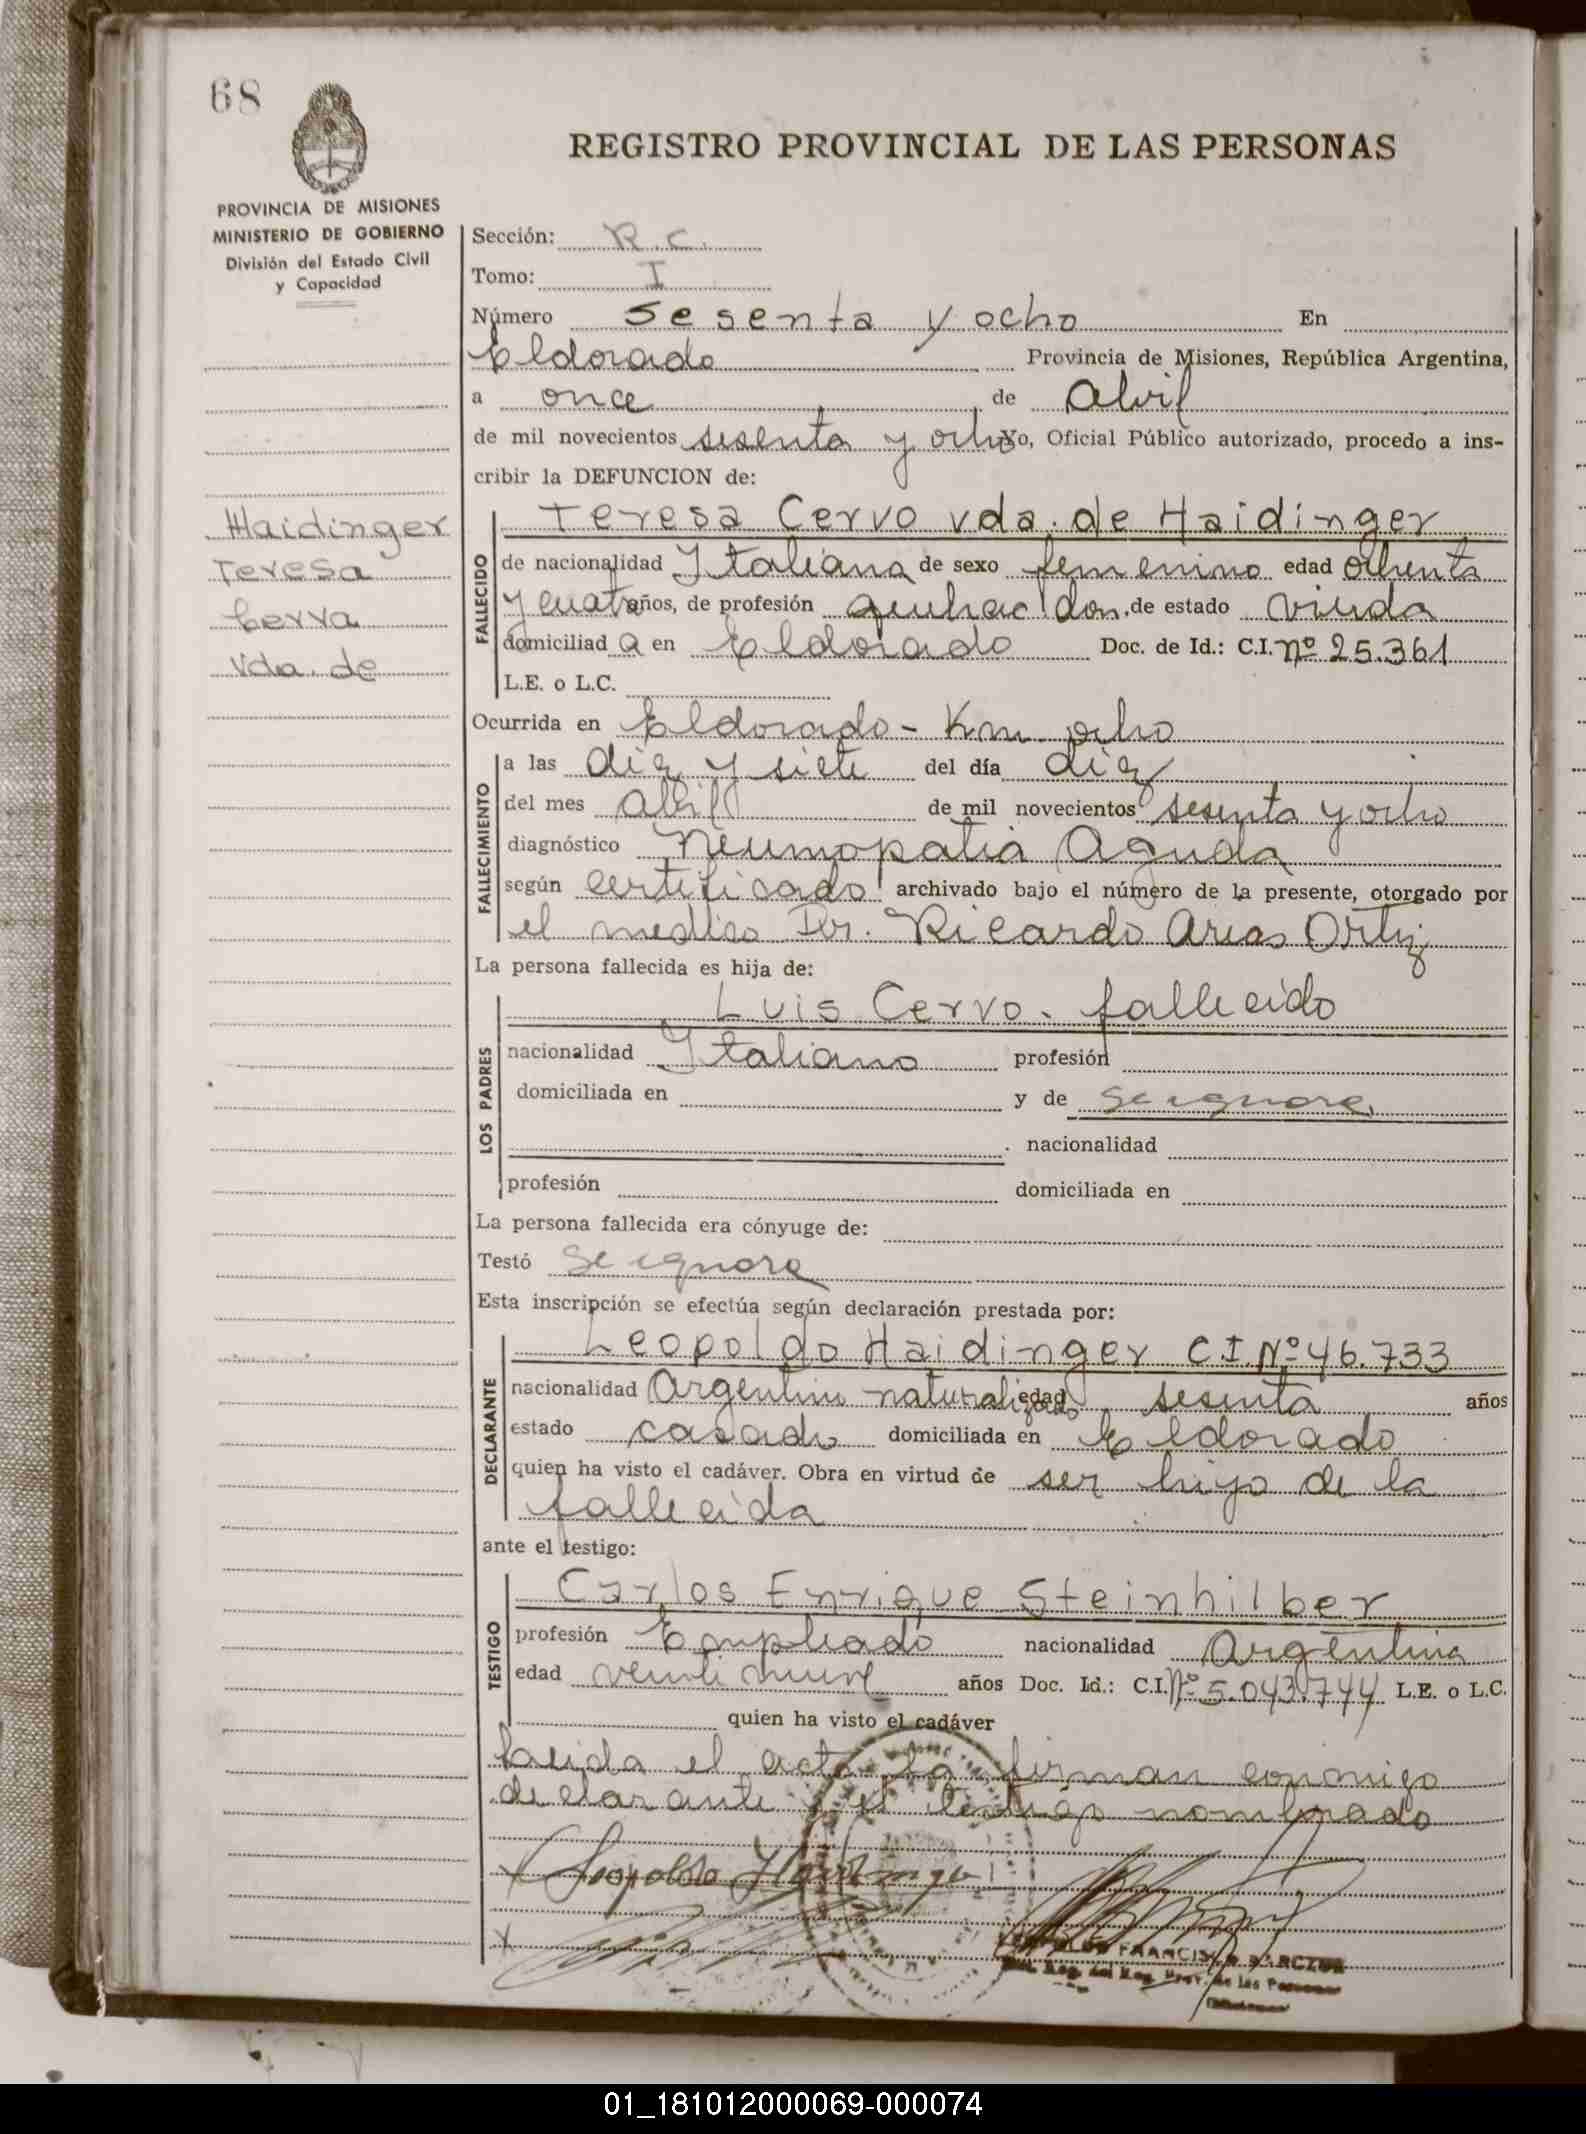 68
REGISTRO PROVINCIAL DE LAS PERSONAS
PROVINCIA DE MISIONES
MINISTERIO DE GOBIERNO
División del Estado Civil
y Capacidad
Haidinger
Teresa
Cerva
Vda. de
Sección: R.C.
Tomo: I
Número sesenta y ocho En
Eldorado Provincia de Misiones, República Argentina,
a once de Abril
de mil novecientos sesenta y ocho Yo, Oficial Público autorizado, procedo a ins-
cribir la DEFUNCION de:
FALLECIDO
Teresa Cervo vda. de Haidinger
de nacionalidad Italiana de sexo femenino edad ochenta
y cuatro años, de profesión quehac. dom. de estado viuda
domiciliad a en Eldorado Doc. de Id.: C.I. Nº 25.361
L.E. o L.C.
Ocurrida en Eldorado - Km ocho
FALLECIMIENTO
a las diez y siete del día diez
del mes Abril de mil novecientos sesenta y ocho
diagnóstico Neumopatia Aguda
según certificado archivado bajo el número de la presente, otorgado por
el medico Dr. Ricardo Arias Ortiz
La persona fallecida es hija de:
LOS PADRES
Luis Cervo. fallecido
nacionalidad Italiano profesión
domiciliada en y de se ignora
nacionalidad
profesión domiciliada en
La persona fallecida era cónyuge de:
Testó se ignora
Esta inscripción se efectúa según declaración prestada por:
DECLARANTE
Leopoldo Haidinger C.I. Nº 46.733
nacionalidad Argentino naturalizado edad sesenta años
estado casado domiciliada en Eldorado
quien ha visto el cadáver. Obra en virtud de ser hijo de la
fallecida
ante el testigo:
TESTIGO
Carlos Enrique Steinhilber
profesión Empleado nacionalidad Argentina
edad veintinueve años Doc. Id.: C.I. Nº 5.043.744 L.E. o L.C.
quien ha visto el cadáver
Leida el acta la firman conmigo
declarante y el testigo nombrado
Leopoldo Haidinger
FRANCISCO
01_181012000069-000074